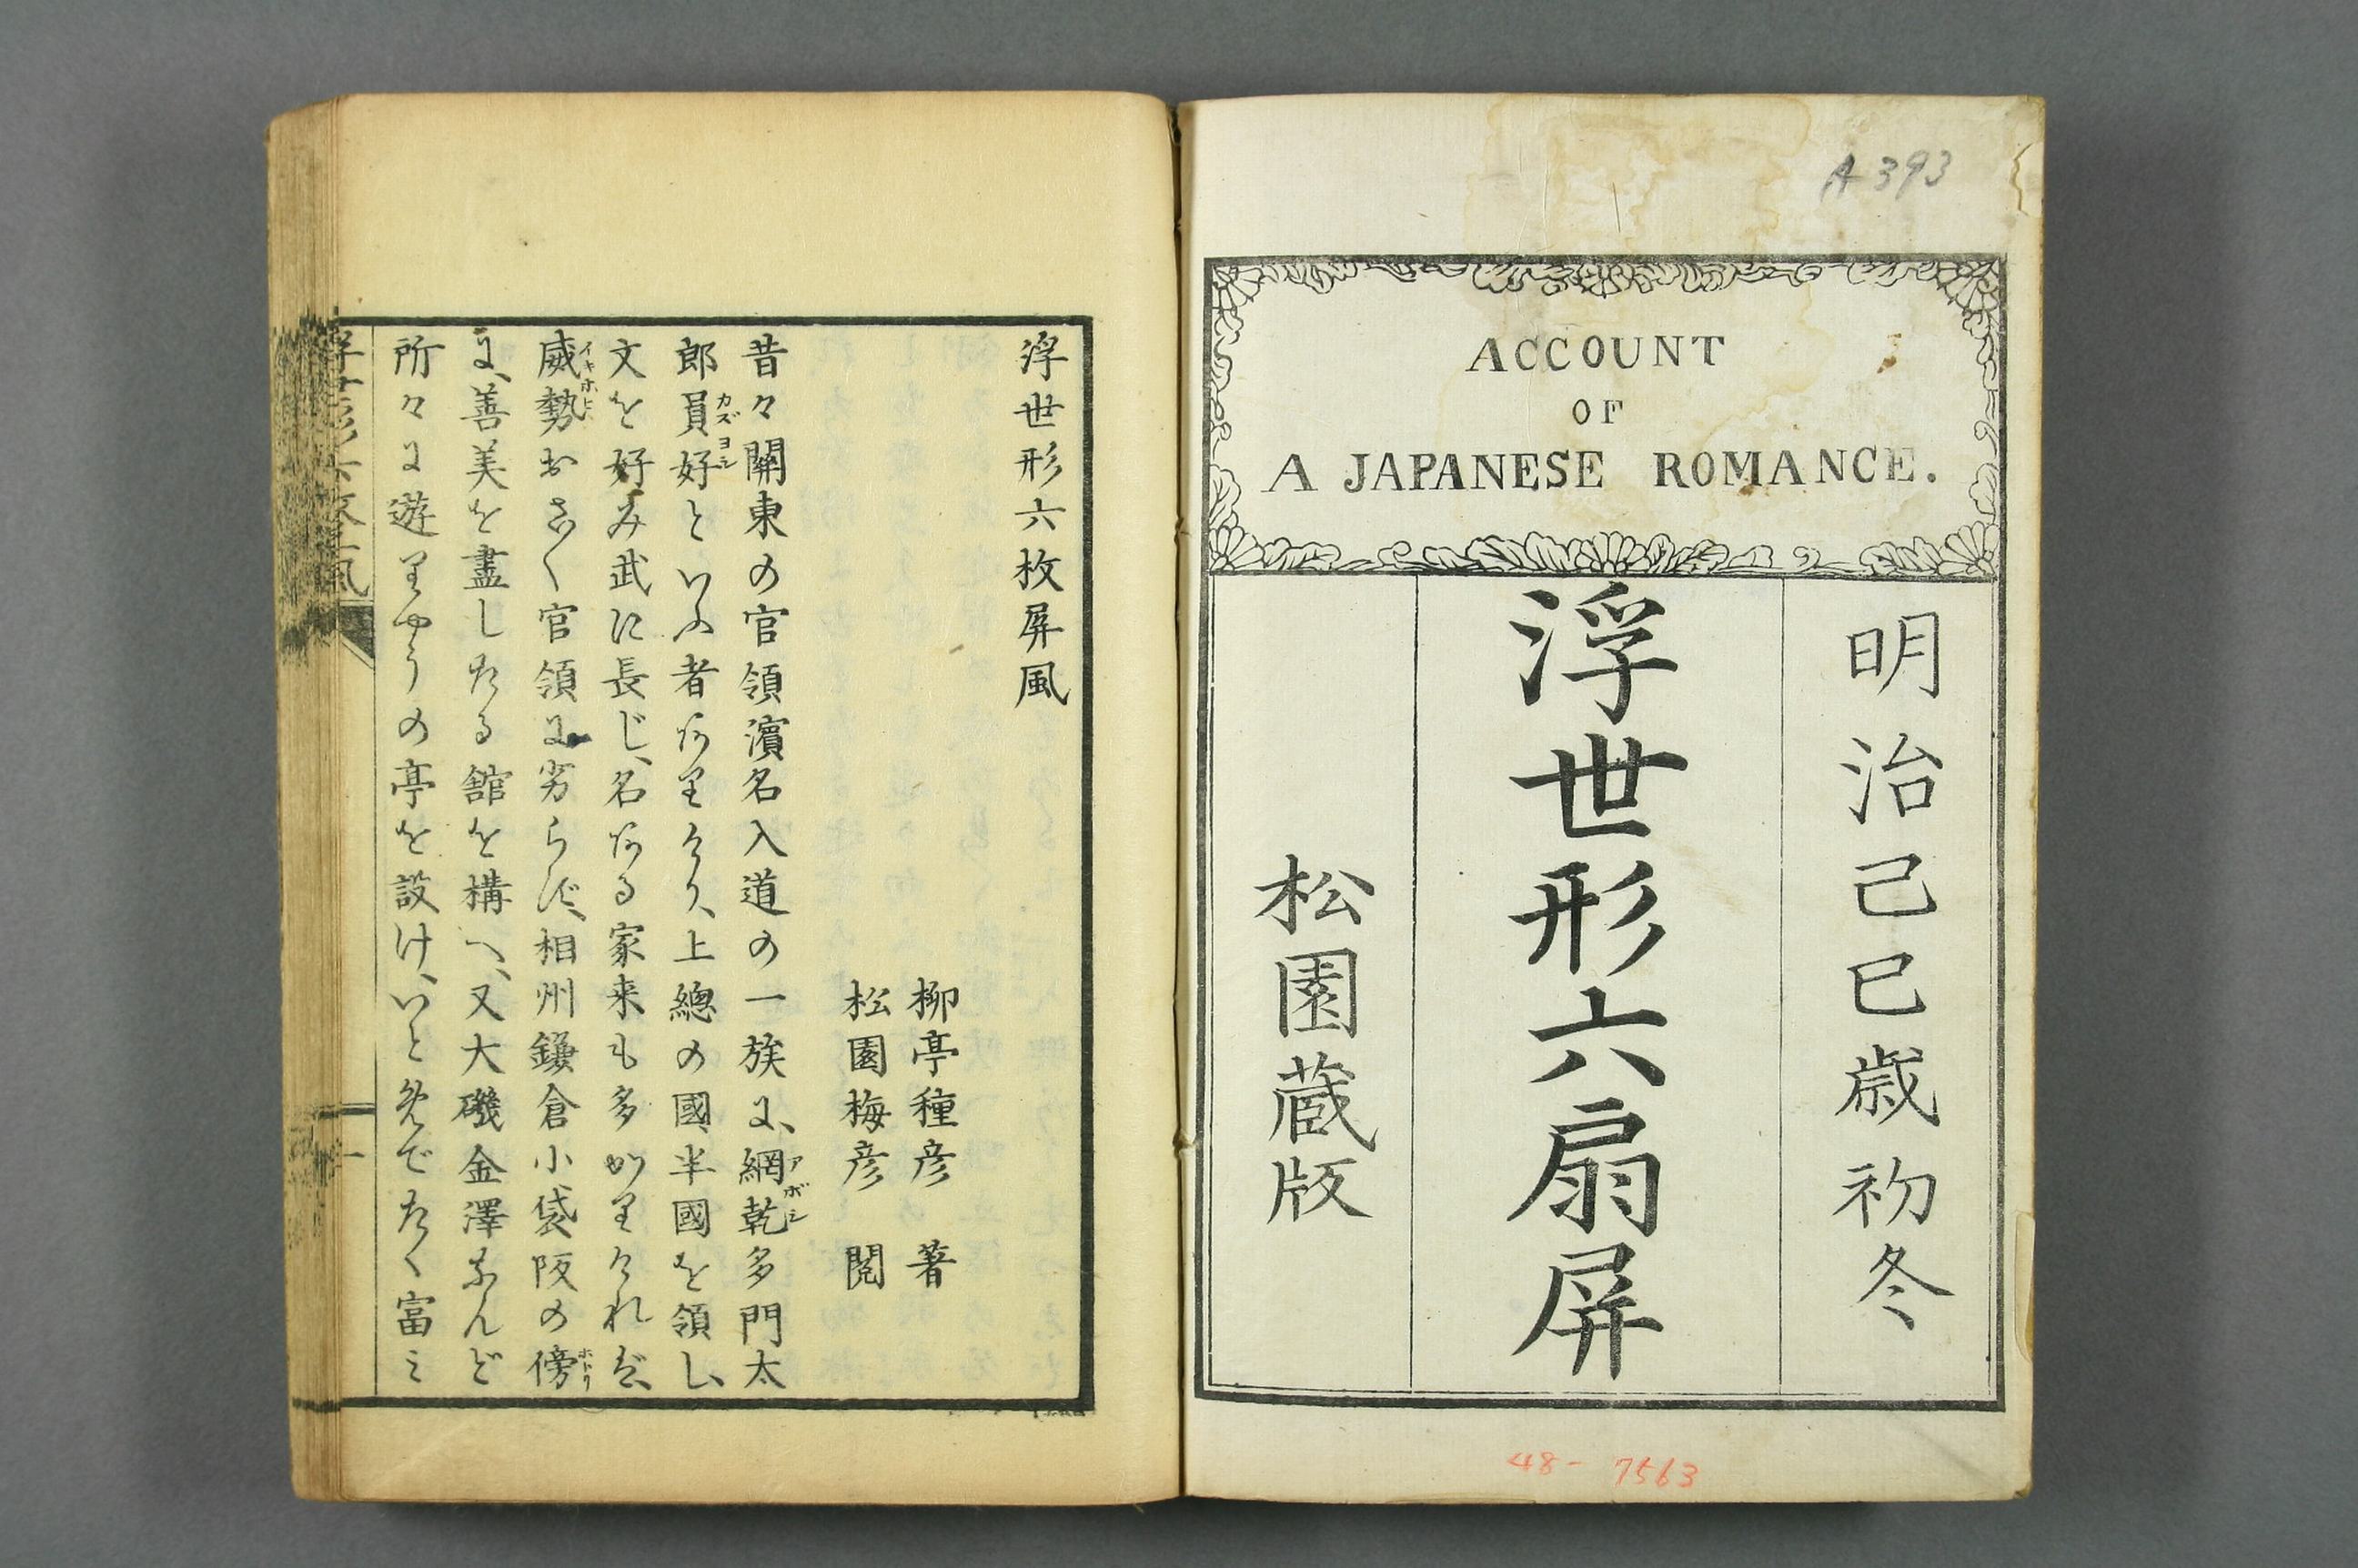 A 393
ACCOUNT
OF
A JAPANESE ROMANCE.
明治己巳歳初冬
浮世形六扇屏
松園蔵版
48-7563
浮世形六枚屏風
柳亭種彦 著
松園梅彦 閲
昔々關東の官領濱名入道の一族に、網乾多門太
アボシ
郎員好といふ者ありけり、上總の國半國を領し、
カズヨシ
文を好み武に長じ、名ある家来も多かりければ、
威勢おさ〱官領に劣らず、相州鎌倉小袋阪の傍
イキホヒ
ホトリ
に、善美を盡したる舘を構へ、又大磯金澤なんど
所々に遊りやうの亭を設け、いとめでたく富ミ